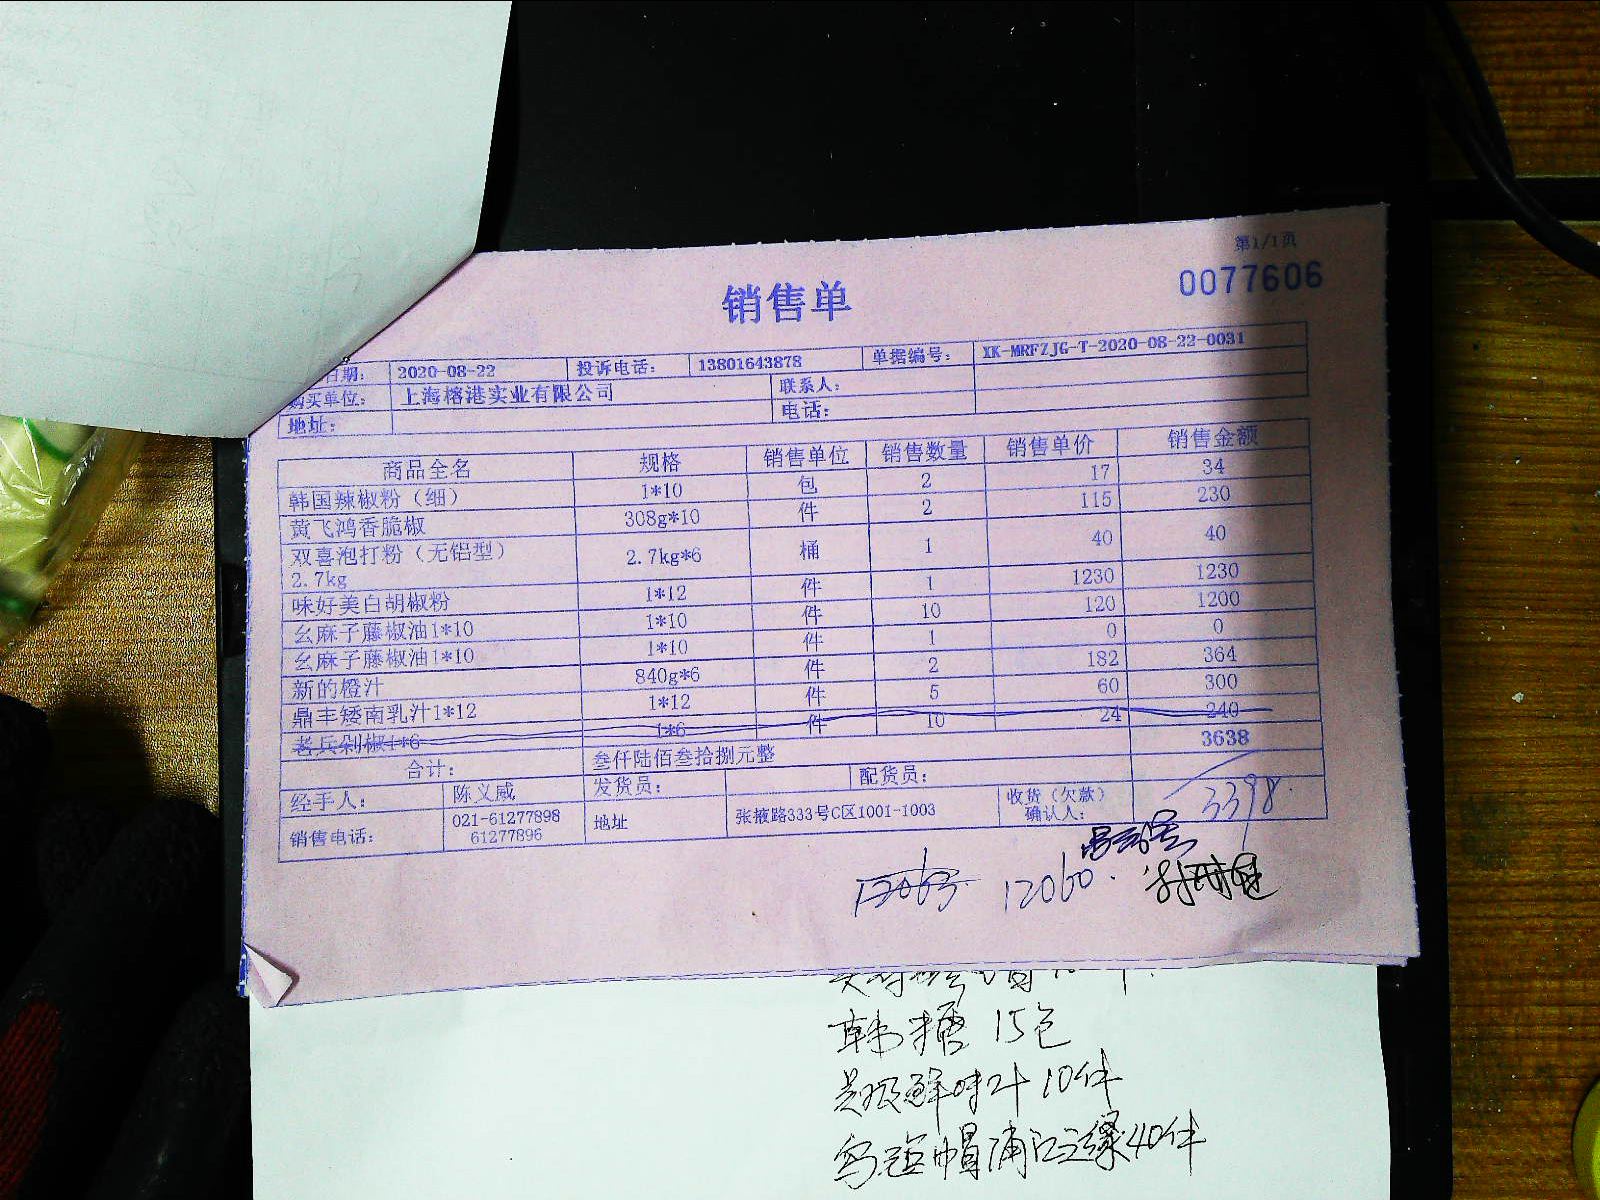 第1/1页
销售单
0077606
日期: 2020-08-22 投诉电话: 13801643878 单据编号: XK-MRFZJG-T-2020-08-22-0031
购买单位: 上海榕港实业有限公司 联系人:
地址: 电话:
商品全名 规格 销售单位 销售数量 销售单价 销售金额
韩国辣椒粉（细） 1*10 包 2 17 34
黄飞鸿香脆椒 308g*10 件 2 115 230
双喜泡打粉（无铝型） 2.7kg*6 桶 1 40 40
2.7kg
味好美白胡椒粉 1*12 件 1 1230 1230
幺麻子藤椒油1*10 1*10 件 10 120 1200
幺麻子藤椒油1*10 1*10 件 1 0 0
新的橙汁 840g*6 件 2 182 364
鼎丰矮南乳汁1*12 1*12 件 5 60 300
老兵剁椒1*6 1*6 件 10 24 240
合计: 叁仟陆佰叁拾捌元整 3638
经手人: 陈义威 发货员: 配货员:
销售电话: 021-61277898 地址 张掖路333号C区1001-1003 收货（欠款）
61277896 确认人:
3398.
12060.
韩糖 15包
鲜味汁 10件
乌毡帽 40件